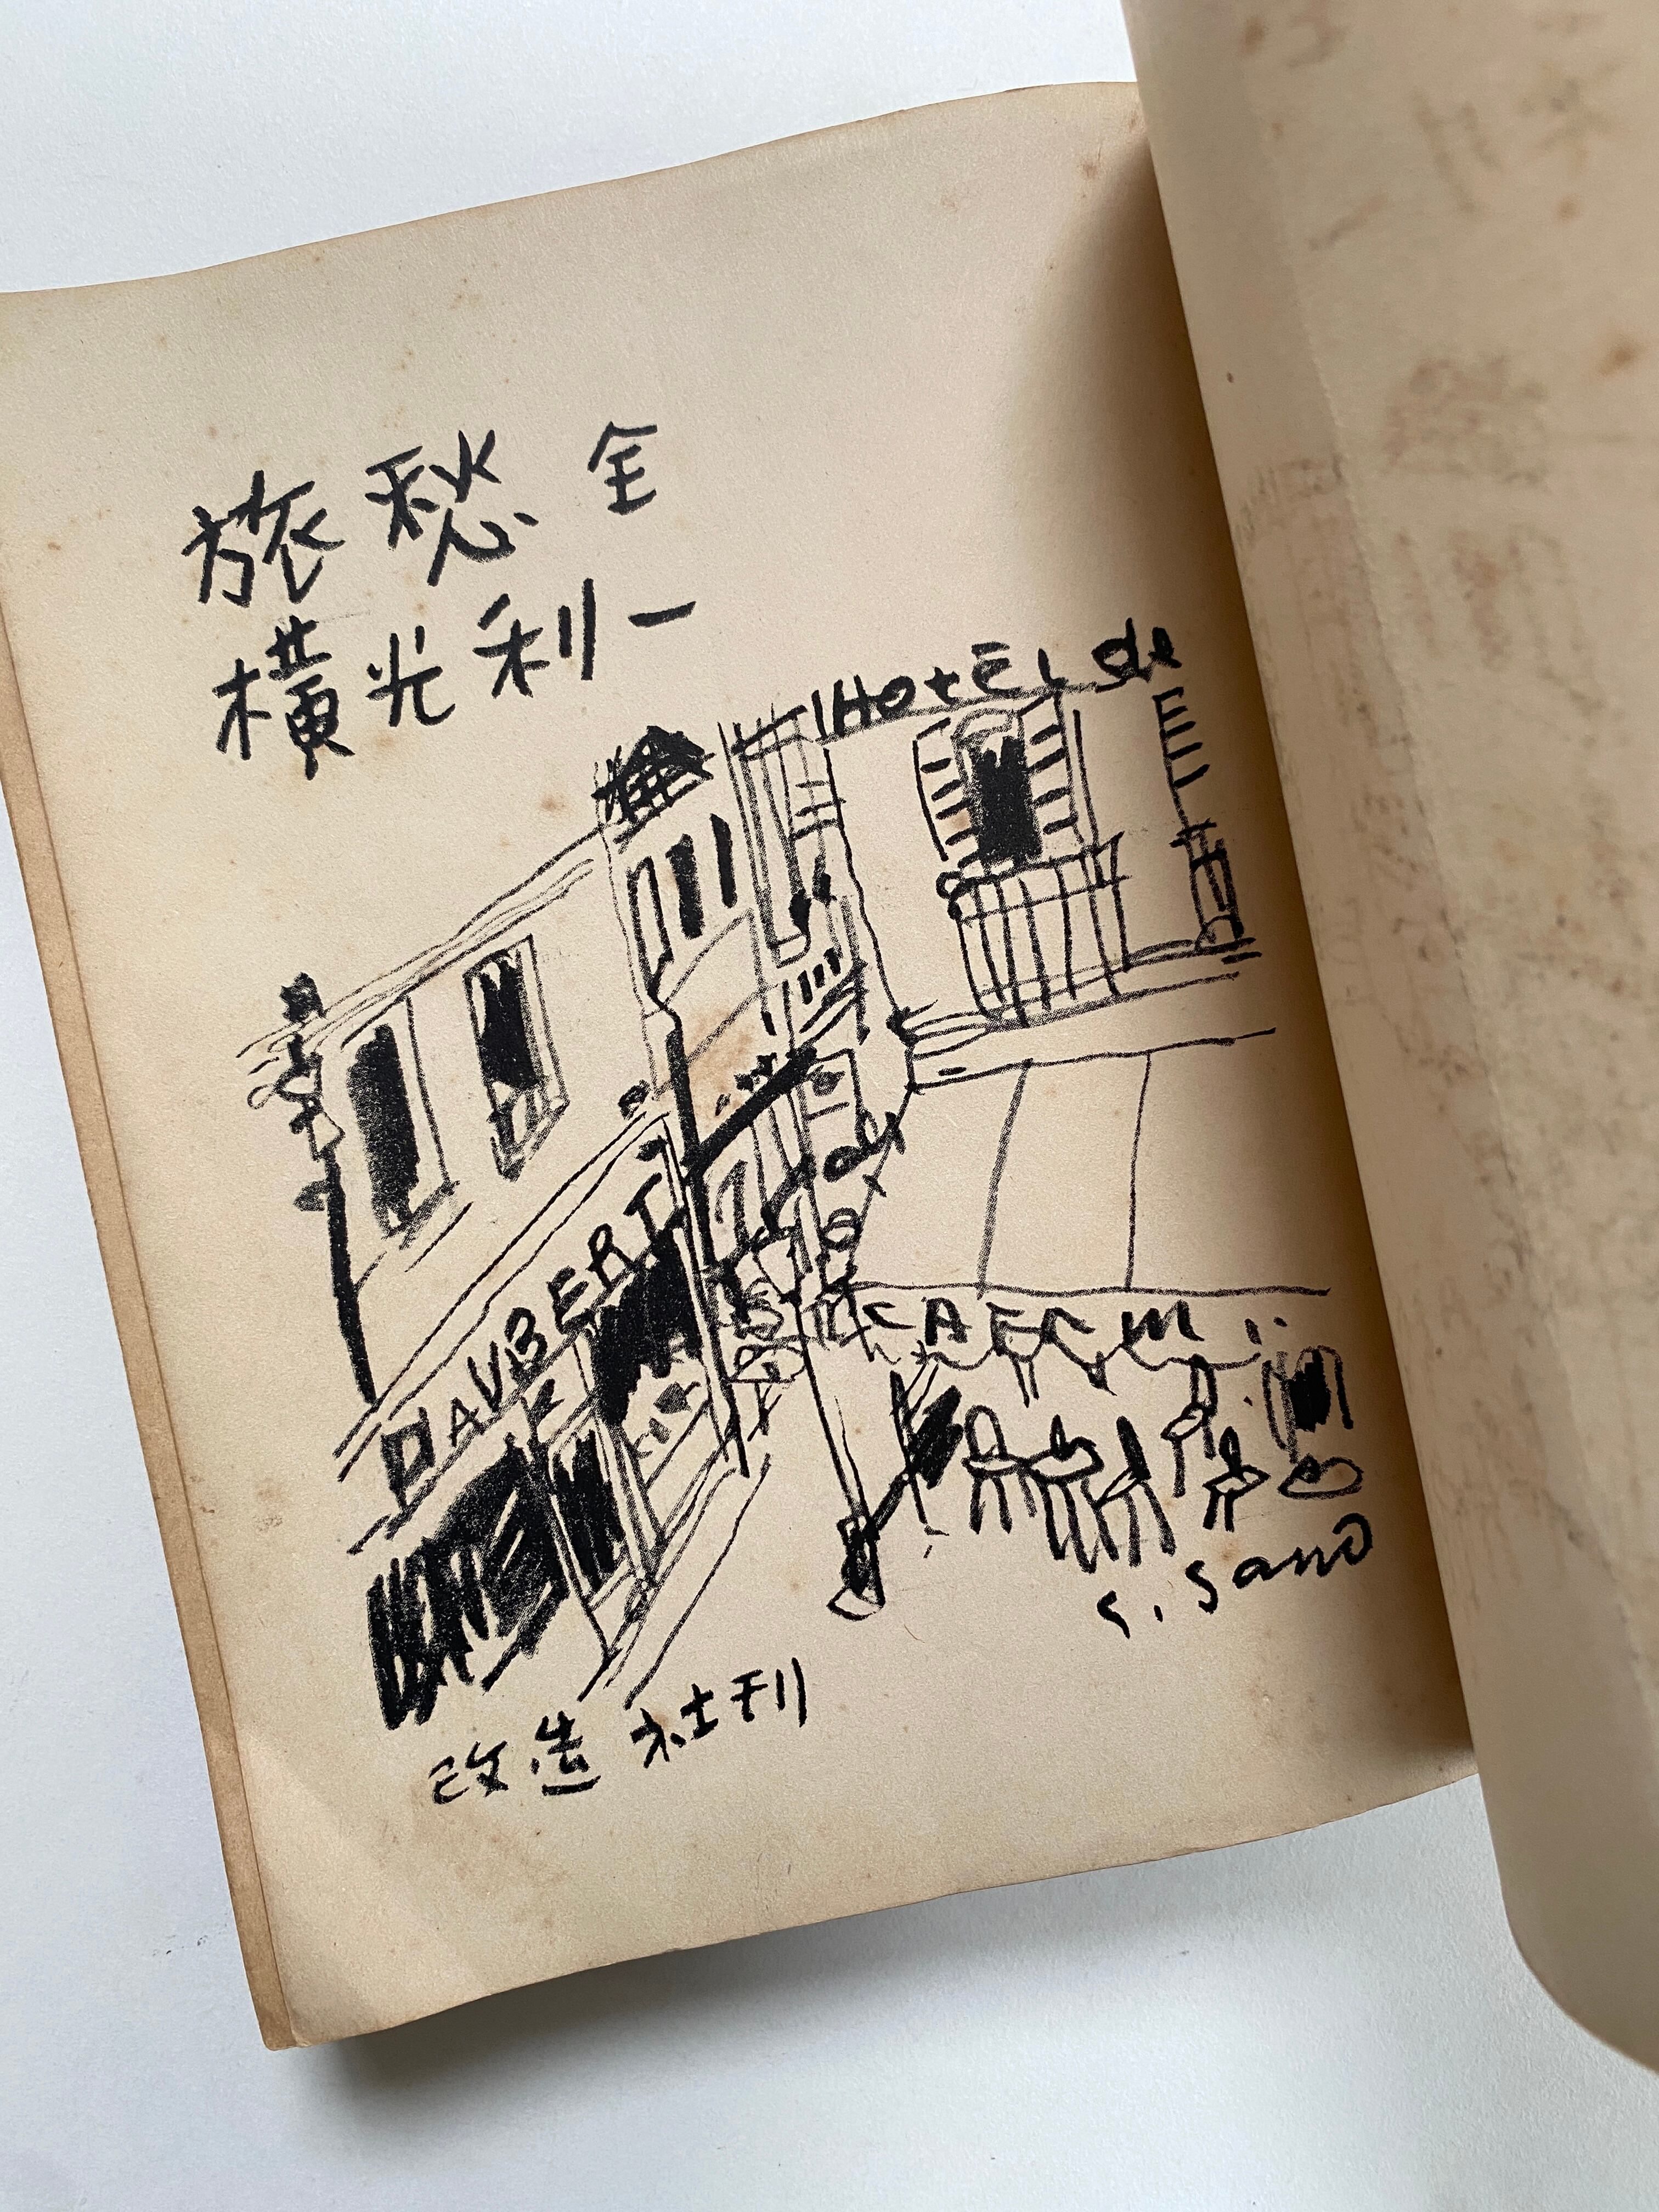 旅愁 全
横光利一
HOTEL de
DAUBERT
S. Sano
改造社刊